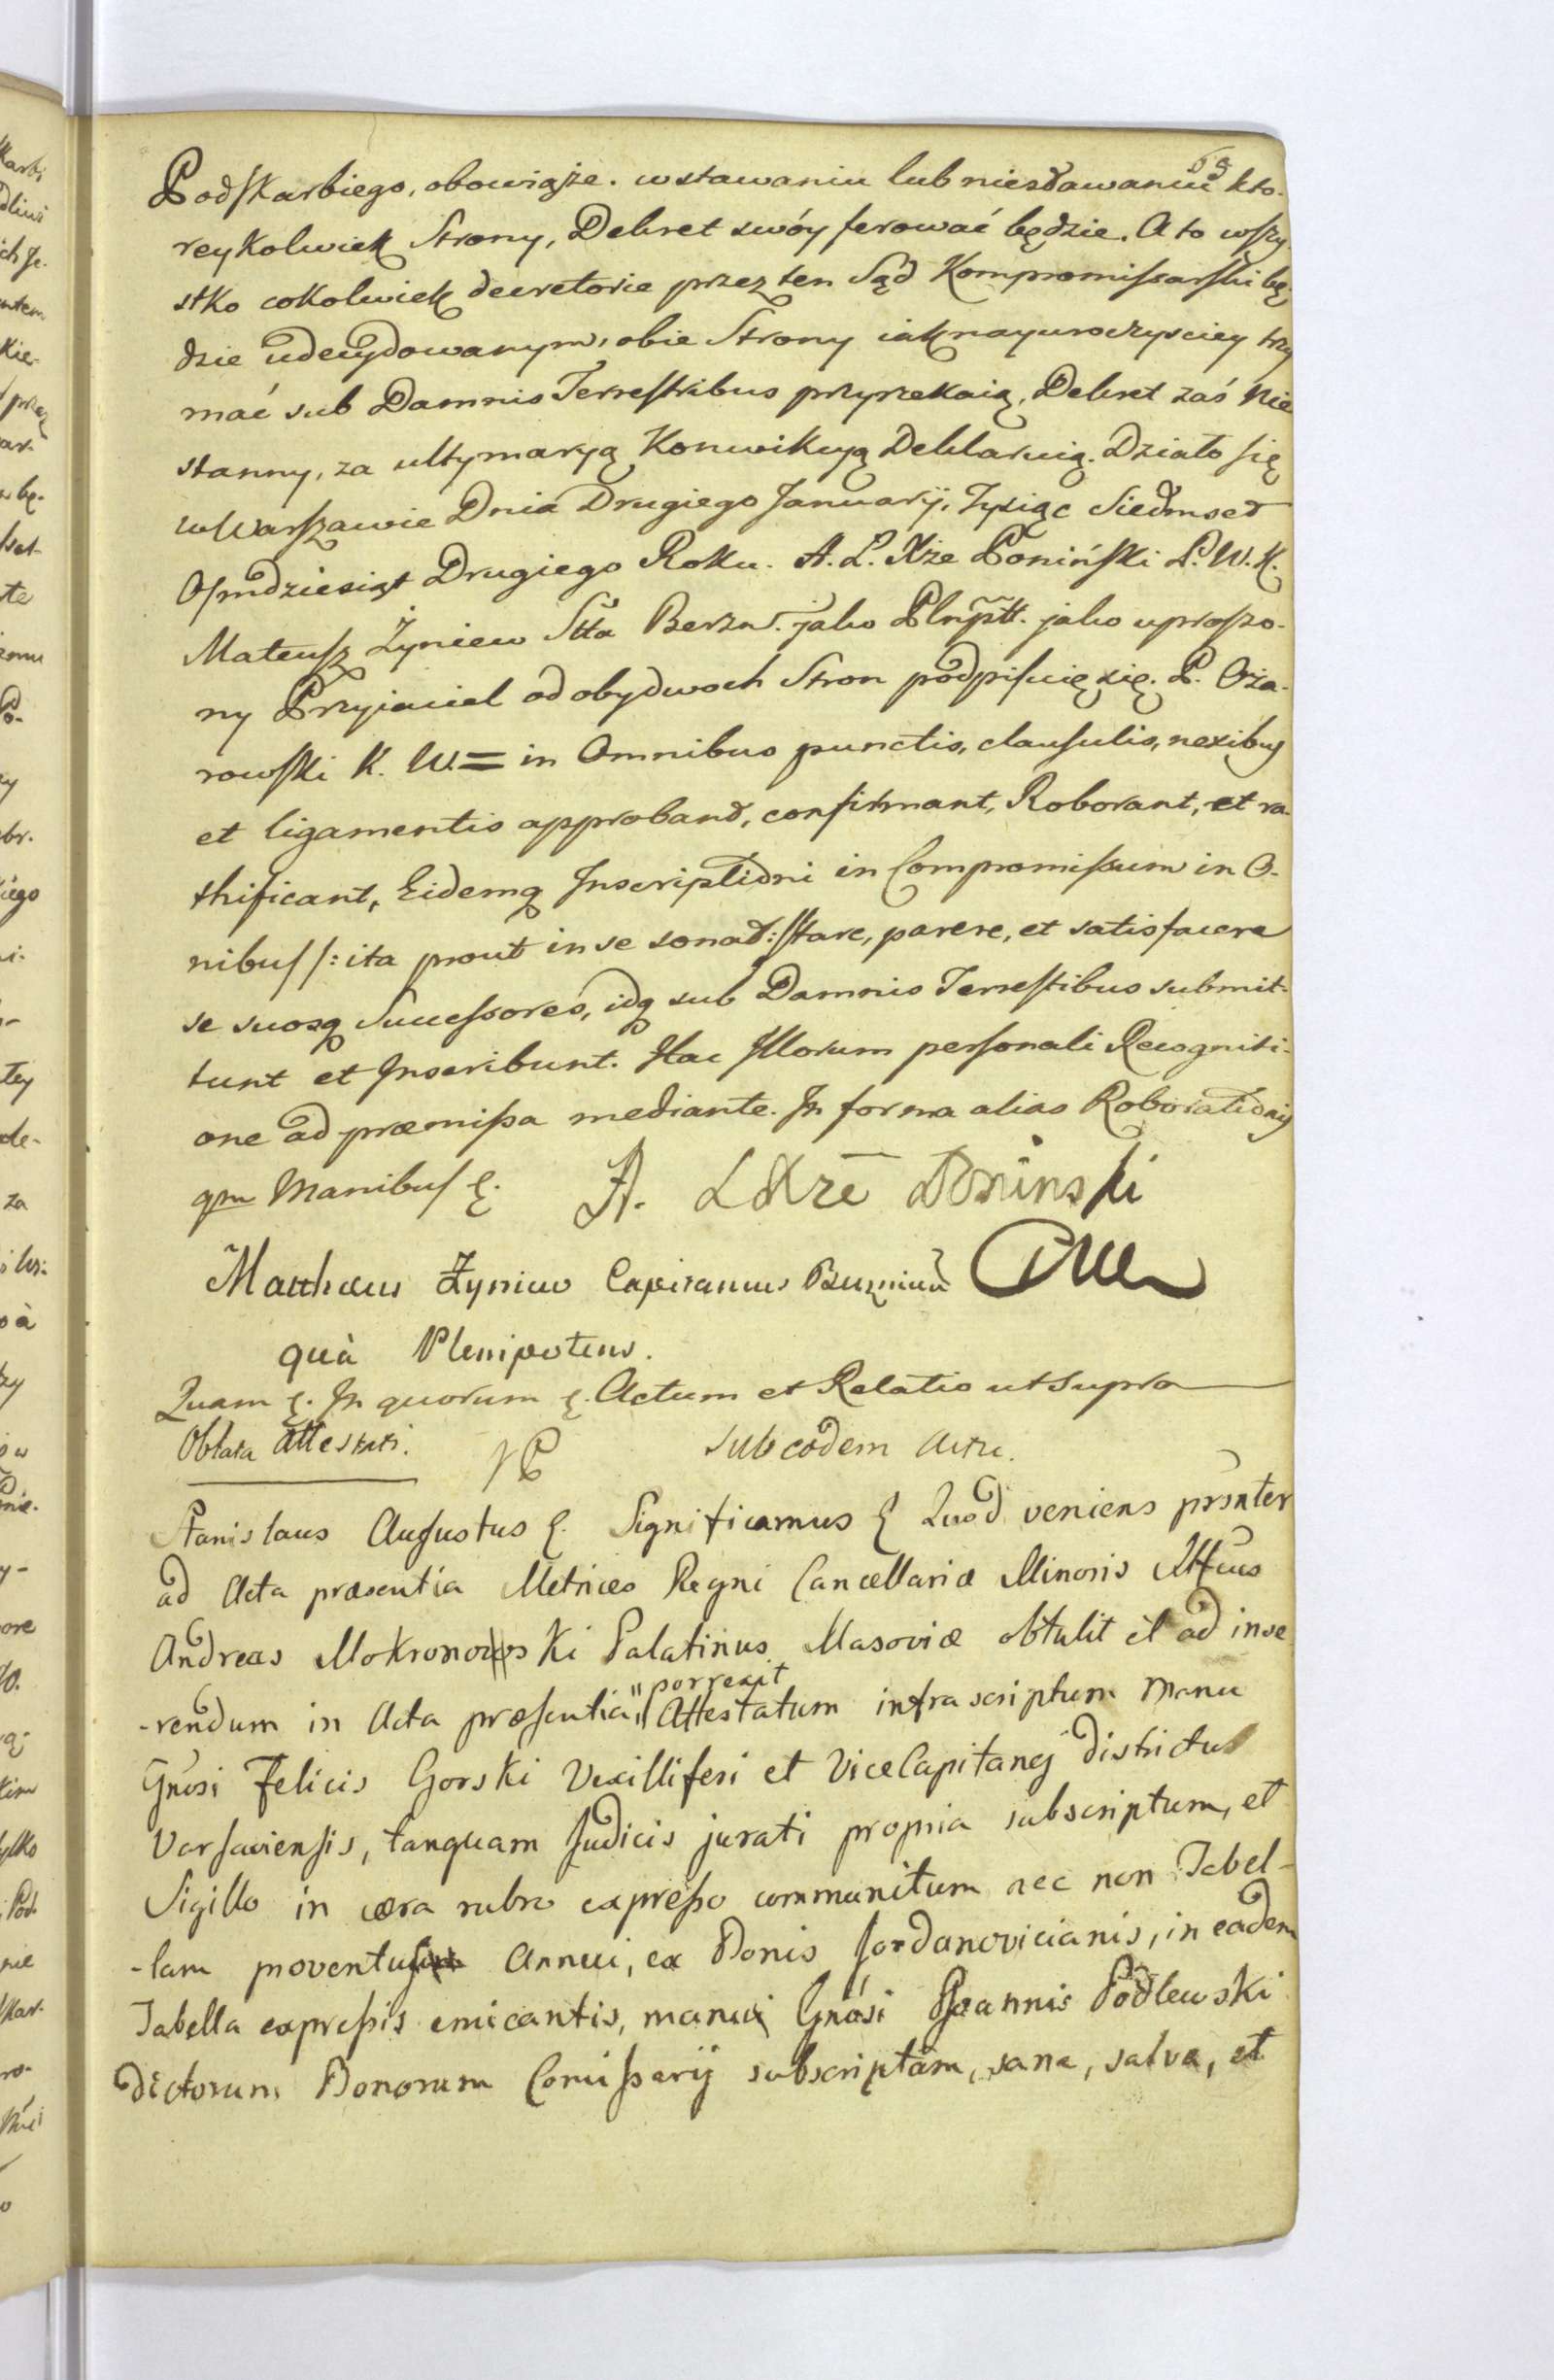 69
Podskarbiego, obowiąże. w stawaniu lub niestawaniu kto-
reykolwiek Strony, Dekret swóy ferować będzie. A to wszy-
stko cokolwiek decretorie przez ten Sąd Kompromissarski bę-
dzie udecydowanym, obie Strony iak nayuroczyściey trzy
mać sub Damnis Terrestribus przyrzekaią, Dekret zaś Nie
stanny, za ultymaryą Konwikcyą Deklaruią. Działo się
w Warszawie Dnia Drugiego Januarij, Tysiąc Siedmset
Osmdziesiąt Drugiego Roku. A. L. Xże Poniński P. W. K.
Mateusz Żyniew Stta Berzn. jako Plnptt. jako uproszo-
ny Przyjaciel od obydwoch Stron podpisuię się. P. Oża-
rowski K. W. = in Omnibus punctis, clausulis, nexibus
et ligamentis approband, confirmant, Roborant, et ra-
thificant, Eidemq Inscriptioni in Compromissum in O-
nibus /: ita prout in se sonat :/ stare, parere, et satisfacere
se suosq Successores, idq sub Damnis Terrestibus submit-
tunt et Inscribunt. Hac Illorum personali Recogniti-
one ad præmissa mediante. In forma alias Roborationis
qm Manibus &. A. L Xże Poninski
Matthæus Żyniew Capitaneus Berznicen
quà Plenipotens.
Quam &. In quorum &. Actum et Relatio ut supra
Oblata Attestati. sub eodem Actu.
Stanislaus Augustus &. Significamus & Quod veniens prsnter
ad Acta præsentia Metrices Regni Cancellariæ Minoris Mffcus
Andreas Mokronowski Palatinus Masoviæ obtulit et ad inse
-rendum in Acta præsentia" porrexit Attestatum infrascriptum Manu
Gnosi Felicis Gorski Vexilliferi et ViceCapitanej Districtus
Varsaviensis, tanquam Judicis jurati propria subscriptum, et
Sigillo in cæra rubro expresso communitum nec non Tabel-
-lam proventus Annui, ex Bonis Jordanovicianis, in eadem
Tabella expressis emicantis, manu Gnosi Joannis Podlewski
dictorum Bonorum Comissarij subscriptam, sana, salva, et